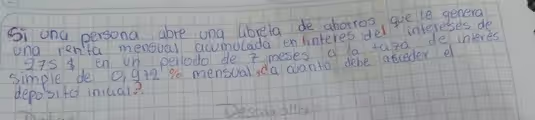 Si una persona abre una libreta de ahorros que le genera
una renta mensual acumulada en interes del intereses de
275 $ en un periodo de 7 meses a la taza de interés
simple de 0,972 % mensual, ¿a cuanto debe atender el
deposito inicial?
Desarrollo